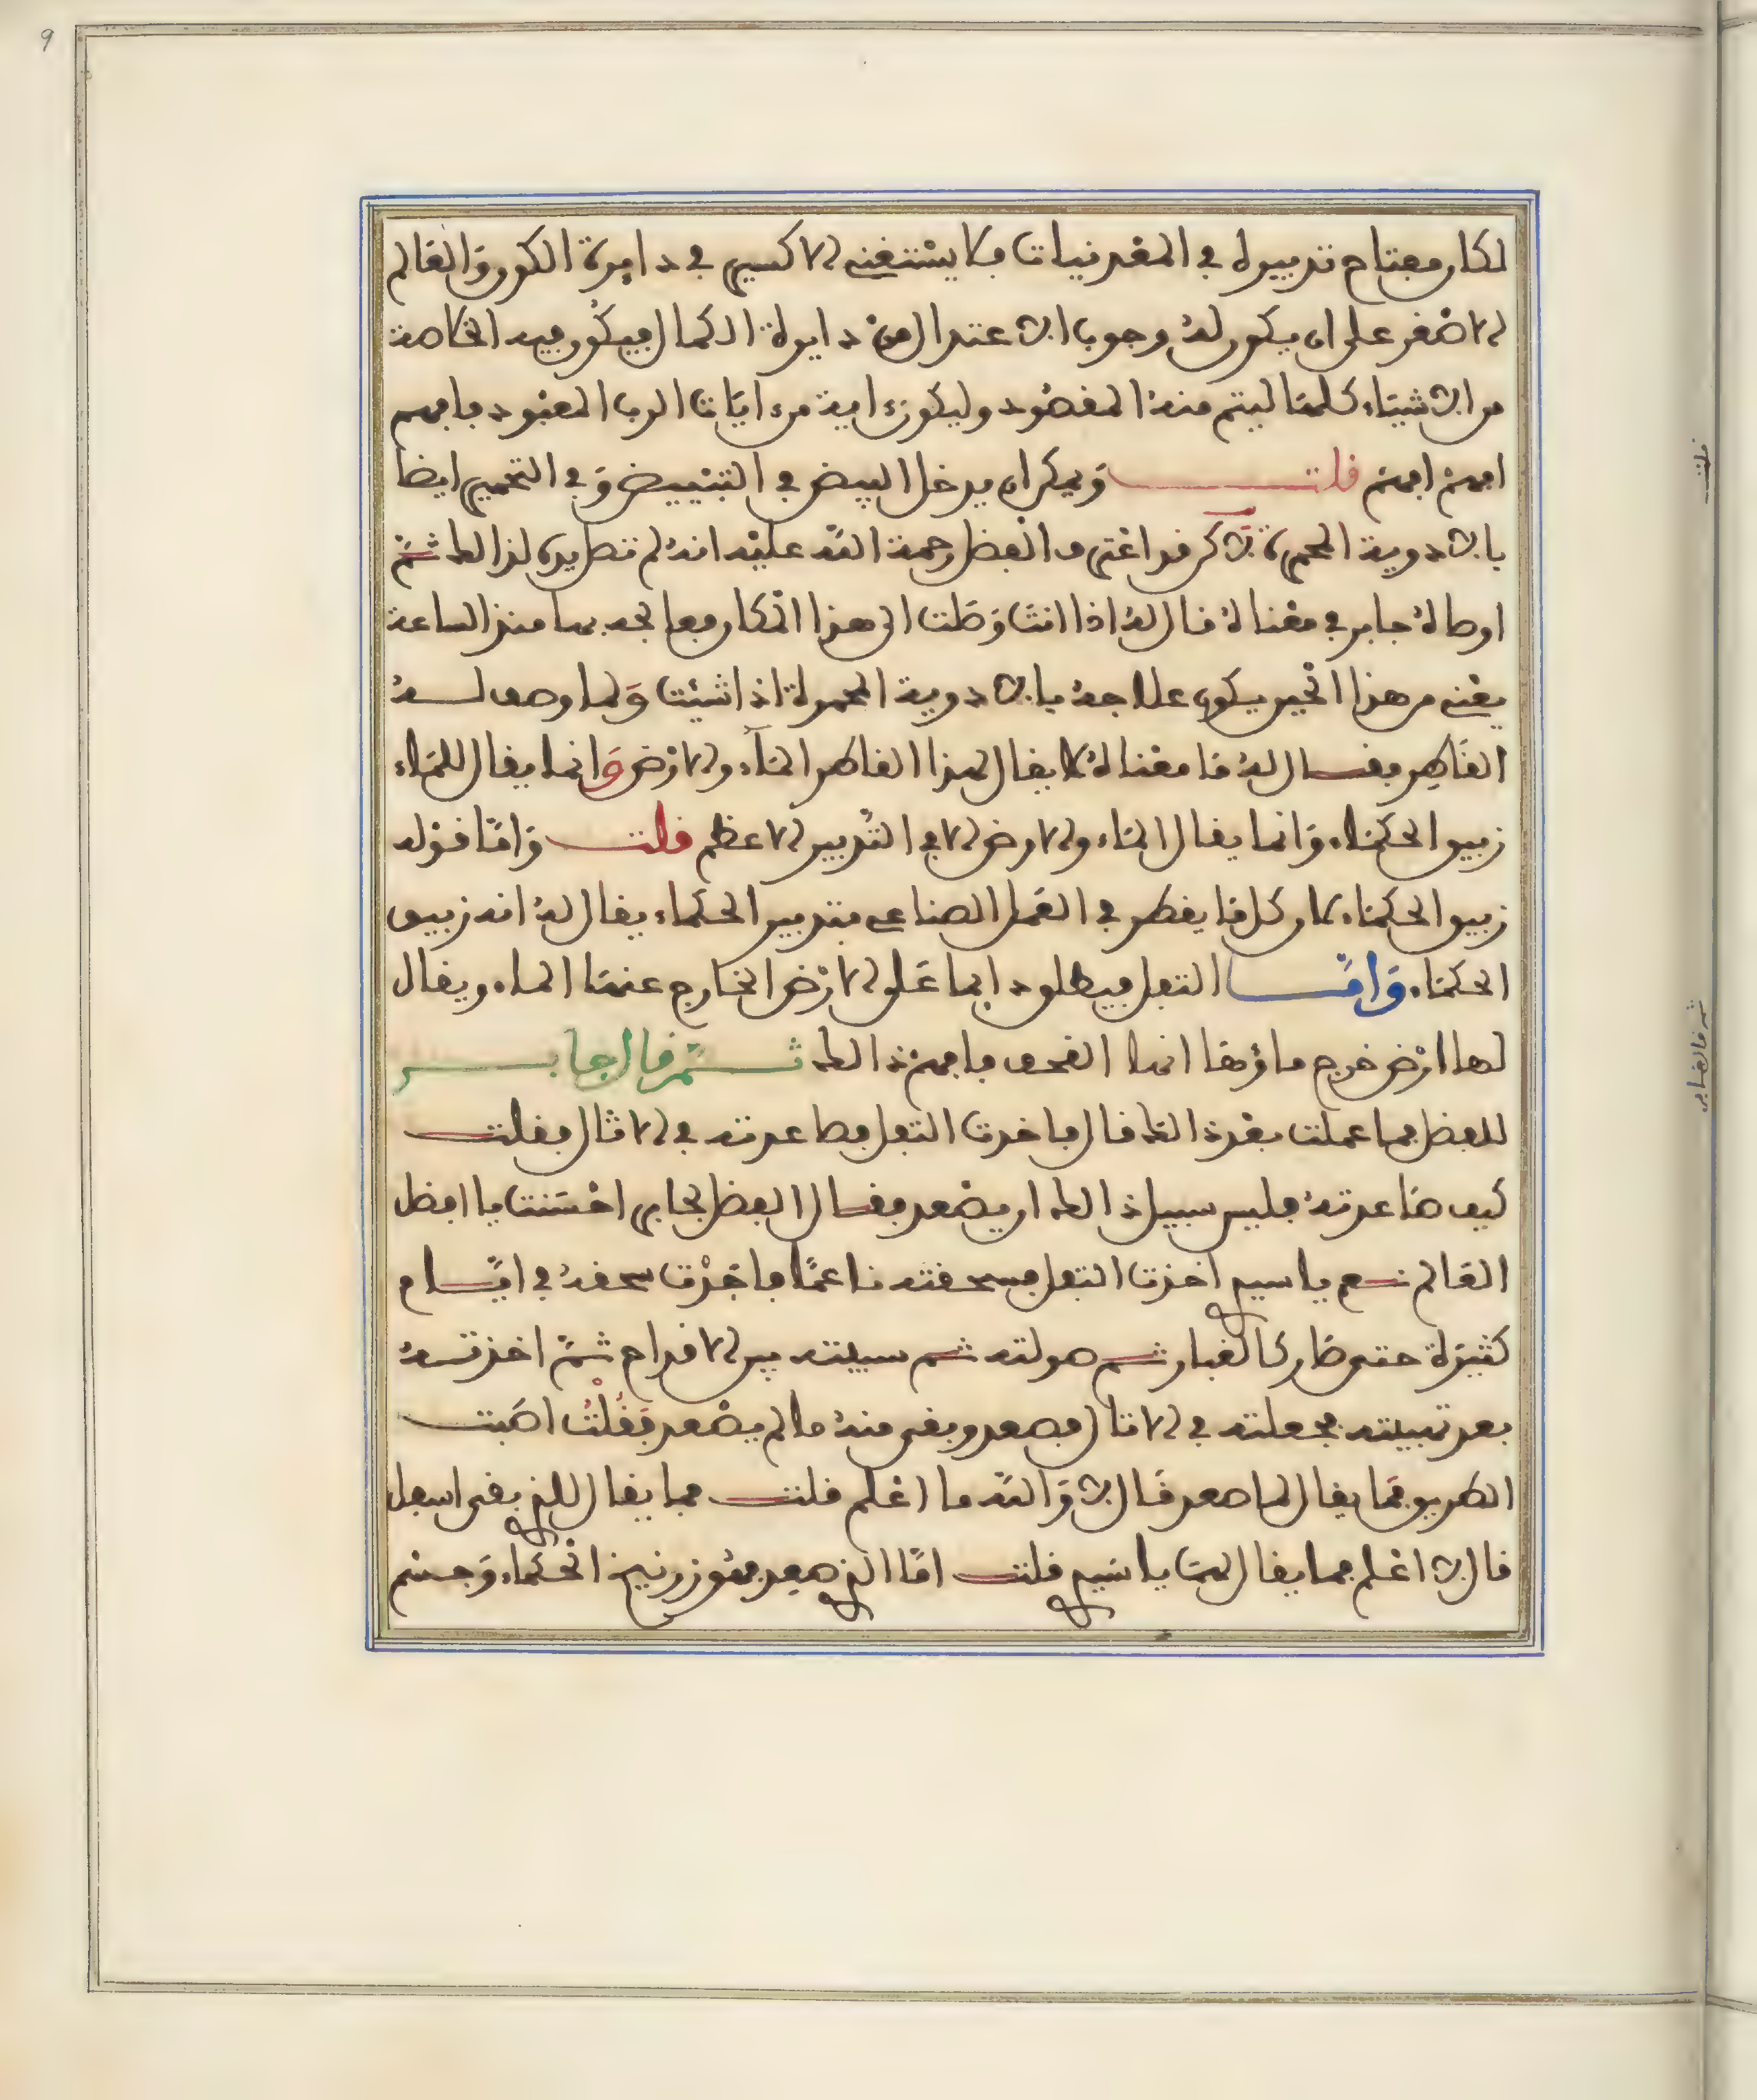 لكان مفتاح تدبيره في المعدنيات فلا يستغني الاكسير في دايرة الكون والعالم
الاصغر على ان يكون له وجوب الاعتدال من دايرة الكمال فيكون فيه الخاصة
من الاشياء كلها ليتم منه المقصود وليكون ءاية من ءايات الرب المعبود فافهم
افهم افهم قلت ويمكن ان يدخل البيض في التبييض وفي التحمير ايضا
بالادوية المحمرة لاكن قد اعترف الفضل رحمة الله عليه انه لم تصل يده لذالك ثم
اوصاه جابر في معناه قال له اذا انت وصلت الى هذا المكان فعالجه بها منذ الساعة
يعني من هذا الحين يكون علاجه بالادوية المحمرة اذا شيت ولما وصف له
القاطر فقال له ما معناه لا يقال لهذا القاطر الماء والارض وانما يقال للماء
زيبق الحكماء وانما يقال الماء والارض الا في التدبير الاعظم قلت واما قوله
زيبق الحكماء فان كل ما يقطر في العمل الصناعي بتدبير الحكماء يقال له انه زيبق
الحكماء واما الثفل فيطلق دايما على الارض الخارج عنها الماء ويقال
لها ارض خرج ماؤها انها القحف فافهم ذالك ثم قال جابر
للفضل فما عملت بعد ذالك قال فاخذت الثفل فصاعدته في الاثال فقلت
كيف صاعدته فليس سبيل ذالك ان يصعد فقال الفضل لجابر احسنت يا افضل
العالم نعم يا سيدي اخذت الثفل فسحقته ناعما فاجدت سحقه في ايام
كثيرة حتى صار كالغبار ثم صولته ثم سيته بين الاقداح ثم اخذته
بعد تبييته فجعلته في الاثال فصعد وبقى منه ما لم يصعد فقلت اصبت
الطريق فما يقال لما صعد قال لا والله ما اعلم قلت فما يقال للذي بقى اسفل
قال لا اعلم فما يقال لهما يا سيدي قلت اما الذي صعد فهو زرنيخ الحكماء وجسم